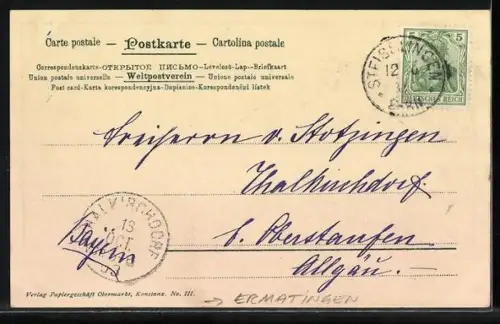 Carte postale — Postkarte — Cartolina postale
Correspondenzkarte-ОТКРЫТОЕ ПИСЬМО-Levelező-Lap-Briefkaart
Union postale universelle — Weltpostverein — Unione postale universale
Post card-Karta korespondencyjna-Dopisnice-Korespondenční lístek
5 5
DEUTSCHES REICH
Freiherrn von Stotzingen
Thalkirchdorf
b. Oberstaufen
Allgäu.
THALKIRCHDORF
13
OCT.
Bayern
Verlag Papiergeschäft Obermarkt, Konstanz. No. III.
→ ERMATINGEN